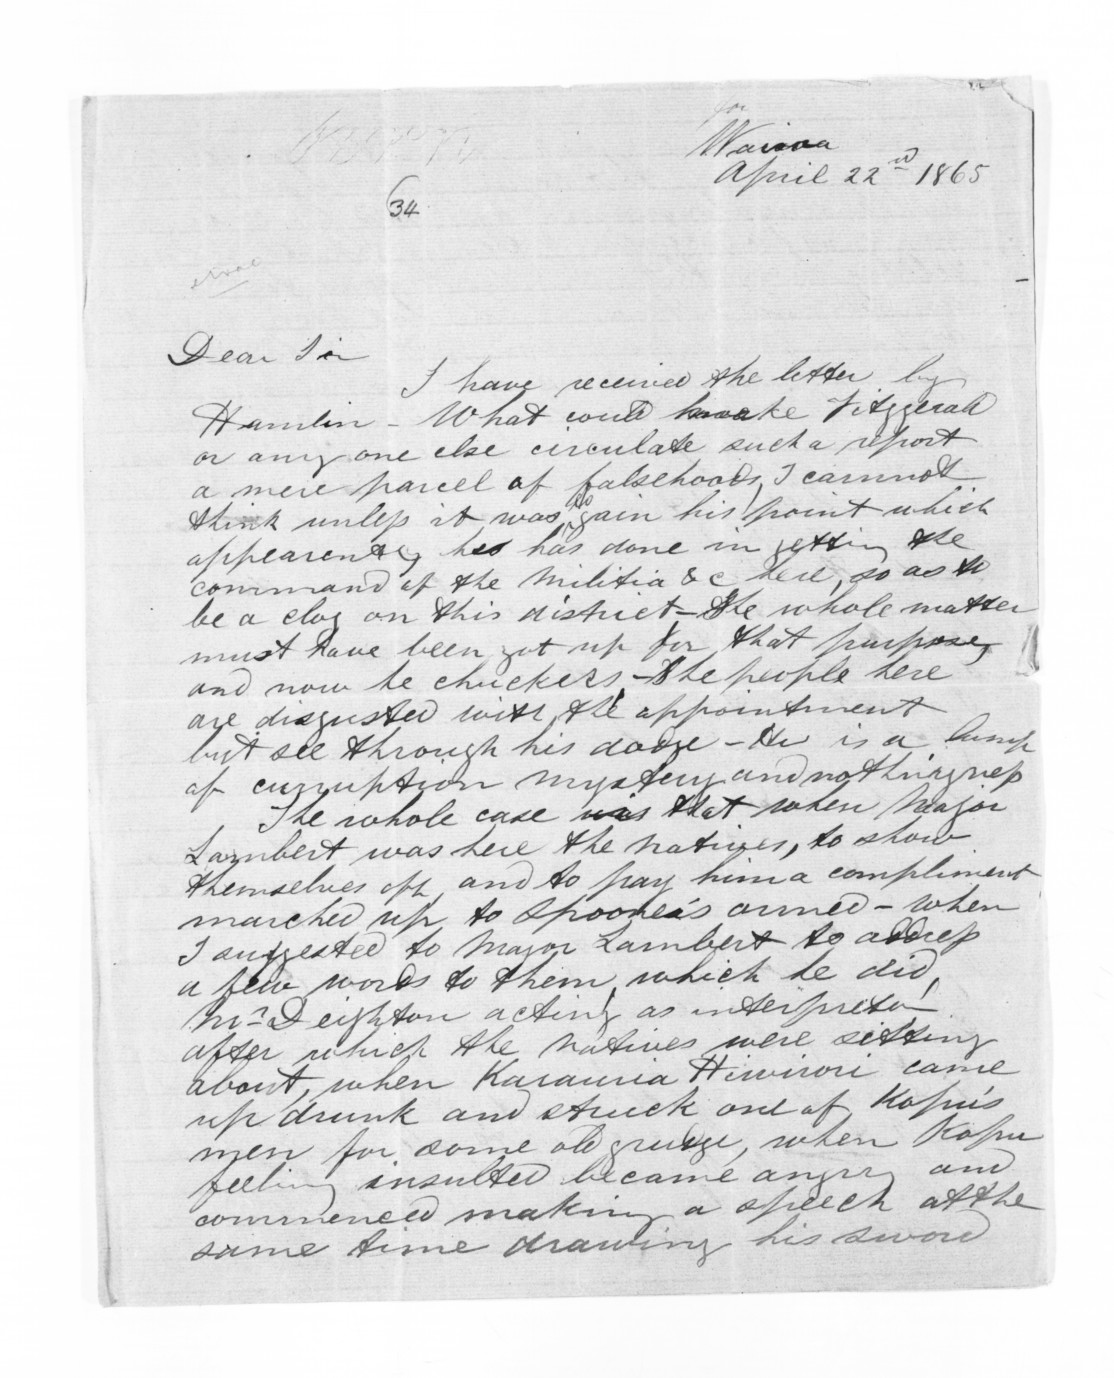 Wairoa
April 22nd 1865
34
Dear Sir
I have received the letter by
Hamlin - What could make Fitzgerald
or any one else circulate such a report
a mere parcel of falsehoods, I cannot
think unless it was to gain his point which
appearently he has done in getting the
command of the Militia &c here, so as to
be a clog on this district - The whole matter
must have been got up for that purpose,
and now he chuckers, - The people here
are disgusted with the appointment
but see through his dodge - He is a lump
of curruption mystery and nothingness
The whole case was that when Major
Lambert was here the natives, to show
themselves off, and to pay him a compliment
marched up to Spooner's armed - when
I suggested to Major Lambert to address
a few words to them, which he did,
Mr Deighton acting as interpreter
after which the natives were sitting
about, when Karauria Hiwirori came
up drunk and struck one of Kopu's
men for some old grudge, when Kopu
feeling insulted became angry and
commenced making a speech at the
same time drawing his sword